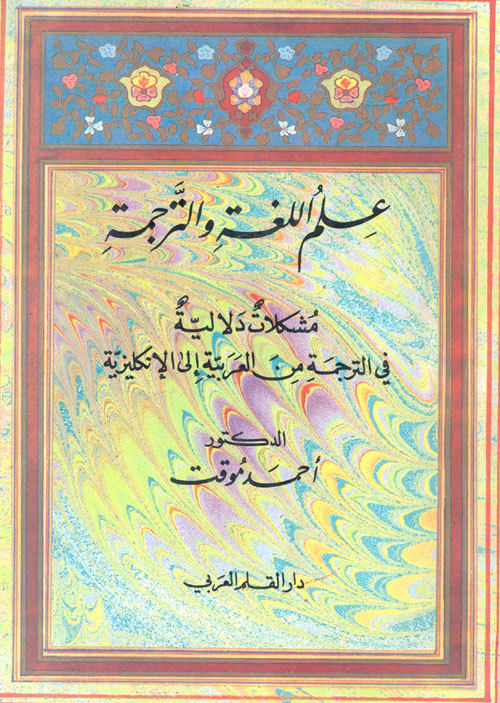 عِلمُ اللغةِ والتَّرجمةِ
مُشكلاتٌ دَلاليّةٌ
في الترجمَةِ مِنَ العَرَبيّةِ إلى الإنكليزيّة
الدكتور
أحمَد مُوقت
دار القلم العربي